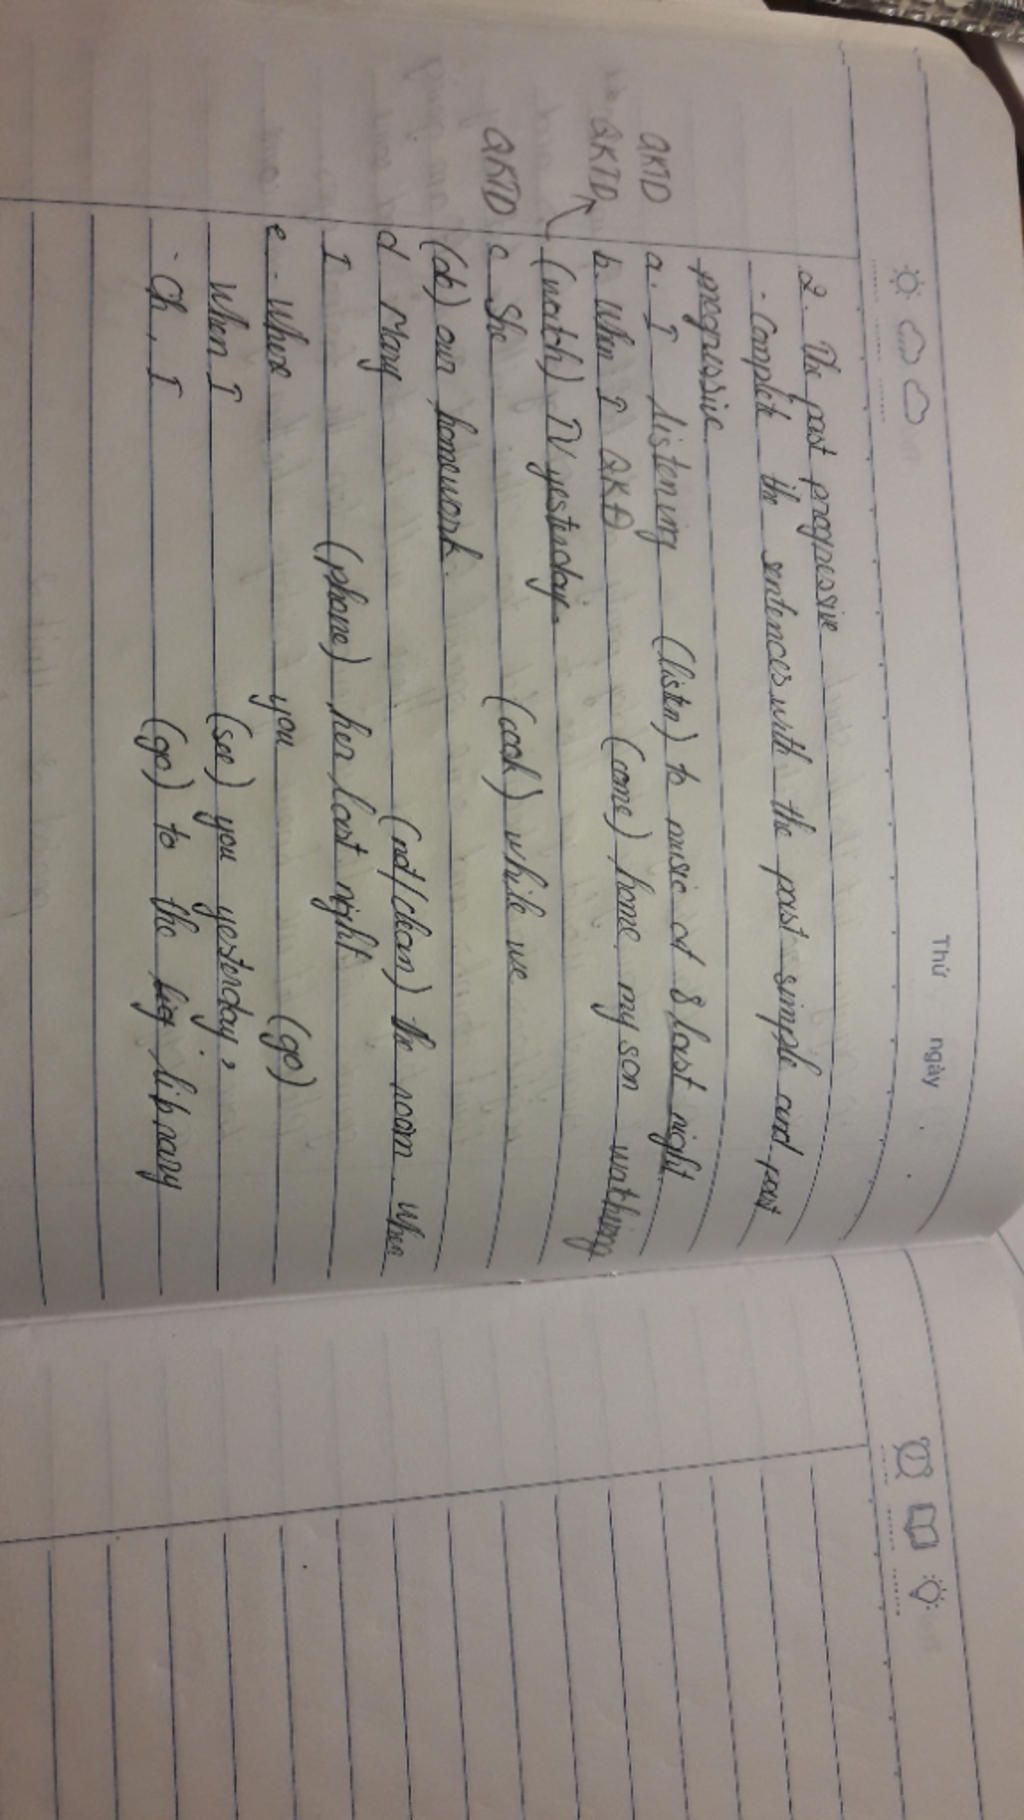 Thứ ngày
2. The past progressive
- Complete the sentences with the past simple and past
progressive
QKTD a. I listening (listen) to music at 8 last night
QKTD b. When I QKĐ (come) home, my son wathing
(wath) TV yesterday.
QKTD c She (cook) while we
(do) our homework.
d Mary (not/clean) the room when
I (phone) her last night
e. Where you (go)
When I (see) you yesterday?
- Oh, I (go) to the library